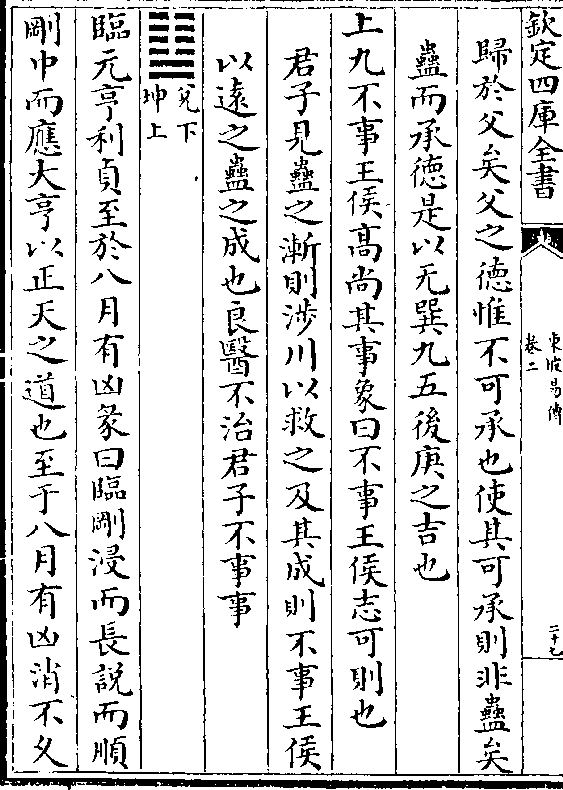 欽定四庫全書
東坡易傳
卷二
二十九
歸於父矣父之德惟不可承也使其可承則非蠱矣
蠱而承德是以无巽九五後庚之吉也
上九不事王侯高尚其事象曰不事王侯志可則也
君子見蠱之漸則涉川以救之及其成則不事王侯
以遠之蠱之成也良醫不治君子不事事
兌下
坤上
臨元亨利貞至於八月有凶彖曰臨剛浸而長說而順
剛中而應大亨以正天之道也至于八月有凶消不久